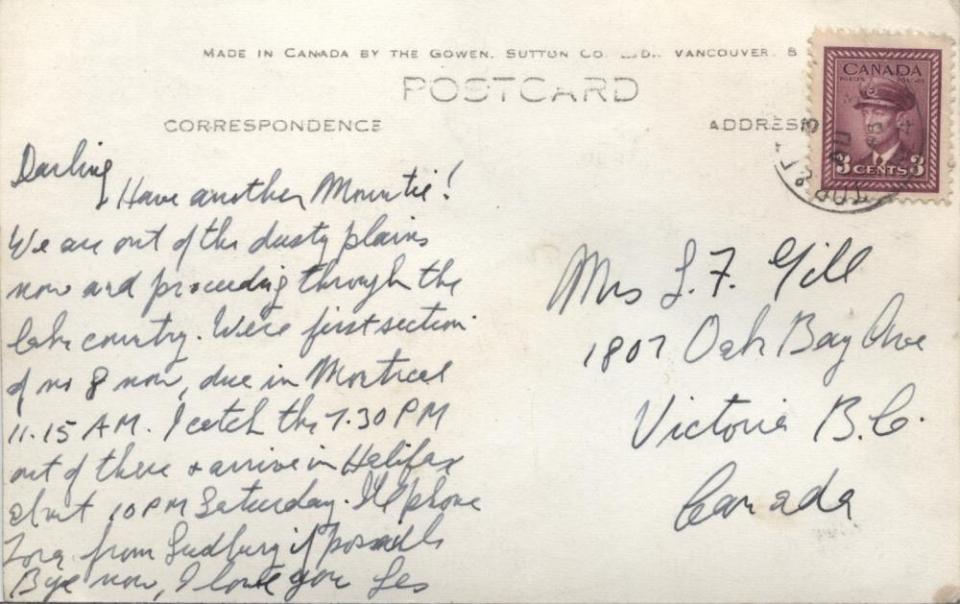 MADE IN CANADA BY THE GOWEN, SUTTON CO. LTD., VANCOUVER, B
POSTCARD
CORRESPONDENCE
ADDRESS
CANADA
POSTES POSTAGE
3 CENTS 3
Darling
Have another Mountie!
We are out of the dusty plains
now and proceeding through the
lake country. We're first section
of no 8 now, due in Montreal
11.15 AM. I catch the 7.30 PM
out of there & arrive in Halifax
about 10 PM Saturday. I'll phone
from Sudbury if possible
Bye now, I love you Les
Mrs L. F. Gill
1807 Oak Bay Ave
Victoria B.C.
Canada